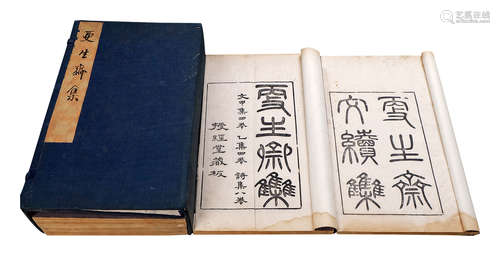 更生齋集
更生齋集
文甲集四卷乙集四卷詩集八卷
授經堂藏板
更生齋
文續集
艺狐在线